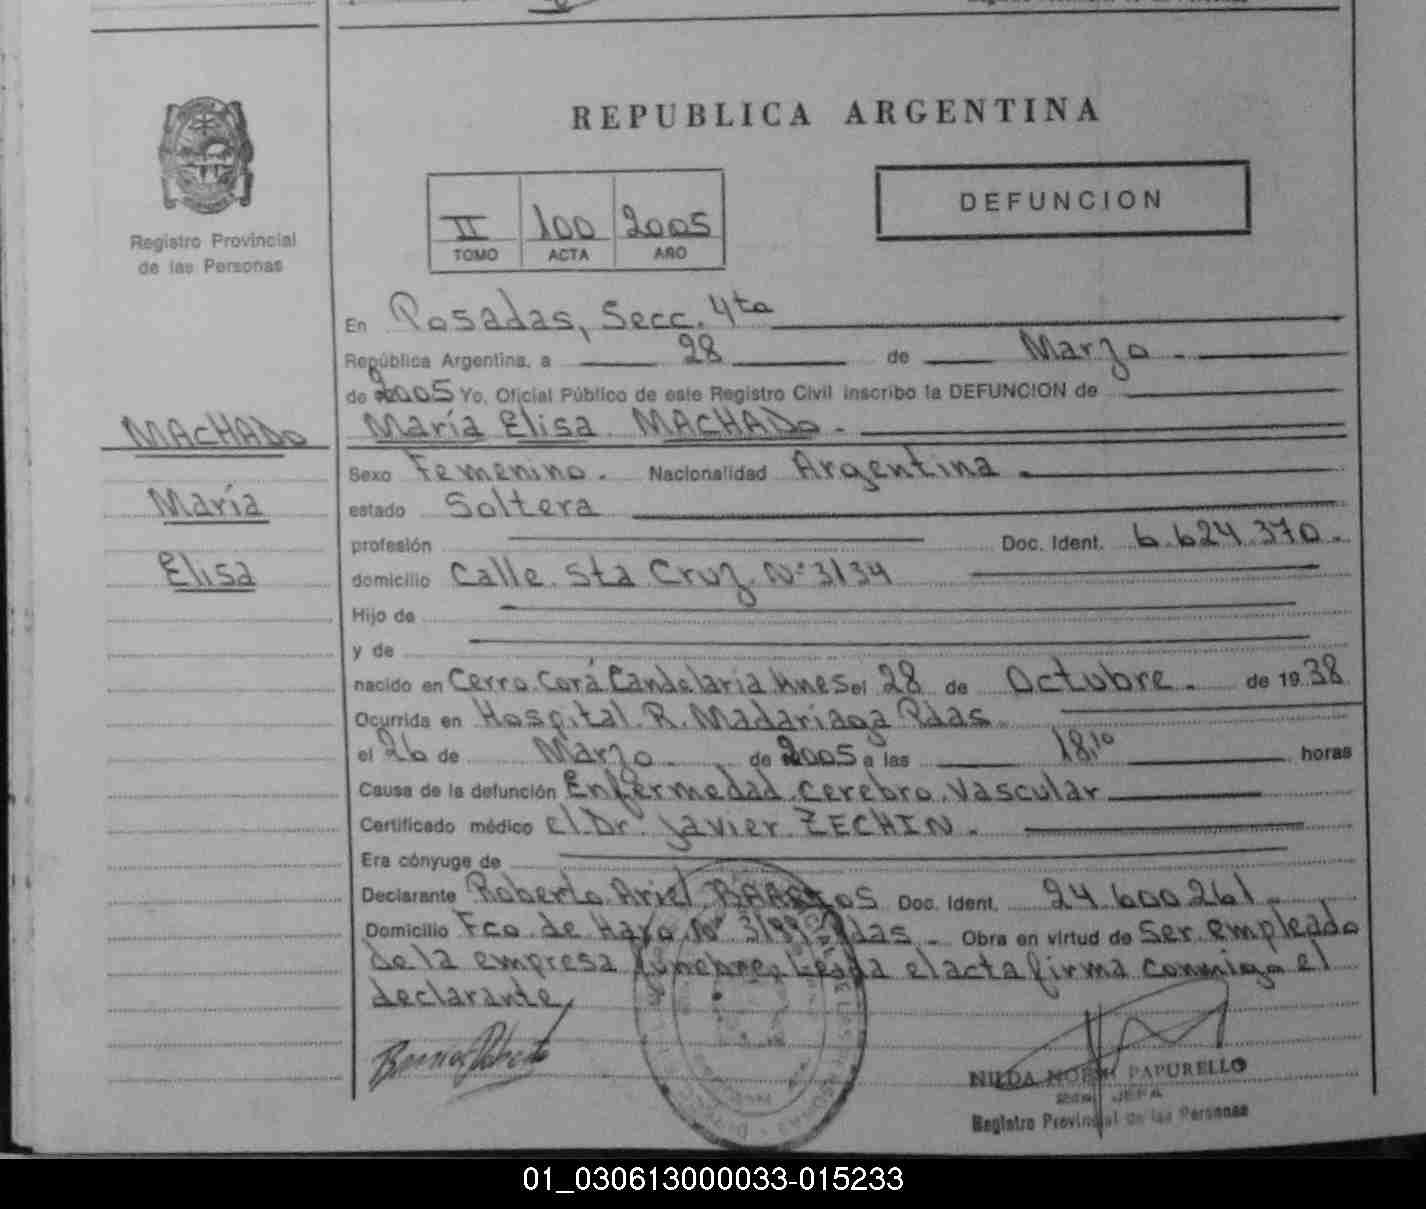 REPUBLICA ARGENTINA
Registro Provincial
de las Personas
II 100 2005
TOMO ACTA AÑO
DEFUNCION
En Posadas, Secc. 4ta
República Argentina, a 28 de Marzo
de 2005 Yo, Oficial Público de este Registro Civil inscribo la DEFUNCION de
MACHADO
María Elisa MACHADO.
María
Elisa
Sexo Femenino. Nacionalidad Argentina
estado Soltera
profesión Doc. Ident. 6.624.370.
domicilio Calle Sta Cruz Nº 3134
Hijo de
y de
nacido en Cerro Corá Candelaria Mnes el 28 de Octubre. de 1938
Ocurrida en Hospital R. Madariaga Pdas
el 26 de Marzo de 2005 a las 18,10 horas
Causa de la defunción Enfermedad cerebro vascular
Certificado médico el Dr. Javier ZECHIN.
Era cónyuge de
Declarante Roberto Ariel Doc. Ident. 24.600.261
Domicilio Fco. de Haro Nº Pdas. Obra en virtud de Ser empleado
de la empresa fúnebre, Leída el acta firma conmigo el
declarante,
NILDA NOEMI PAPURELLO
JEFA
Registro Provincial de las Personas
01_030613000033-015233